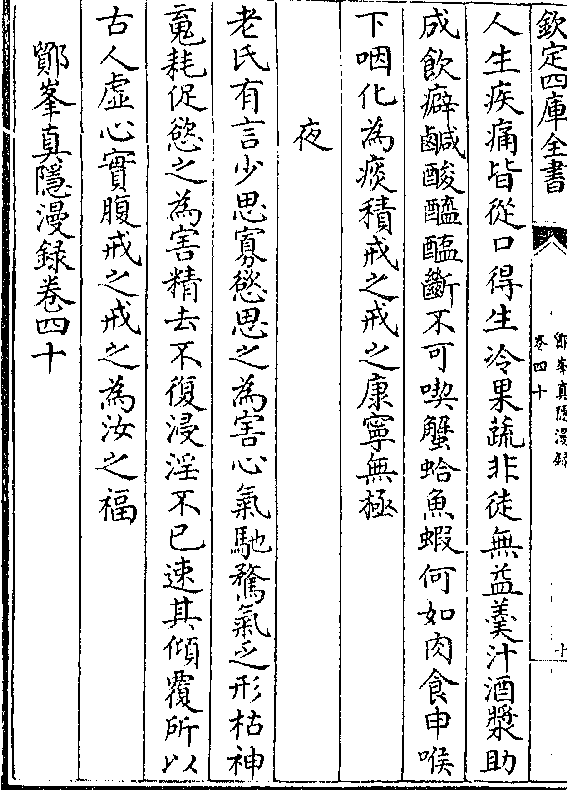 欽定四庫全書
鄮峯真隱漫録
卷四十
十
人生疾痛皆從口得生冷果蔬非徒無益羮汁酒漿助
成飲癖鹹酸醯醢斷不可喫蟹蛤魚蝦何如肉食申喉
下咽化為痰積戒之戒之康寧無極
夜
老氏有言少思寡慾思之為害心氣馳騖氣乏形枯神
䰟耗促慾之為害精去不復浸淫不已速其傾覆所以
古人虚心實腹戒之戒之為汝之福
鄮峯真隱漫録卷四十